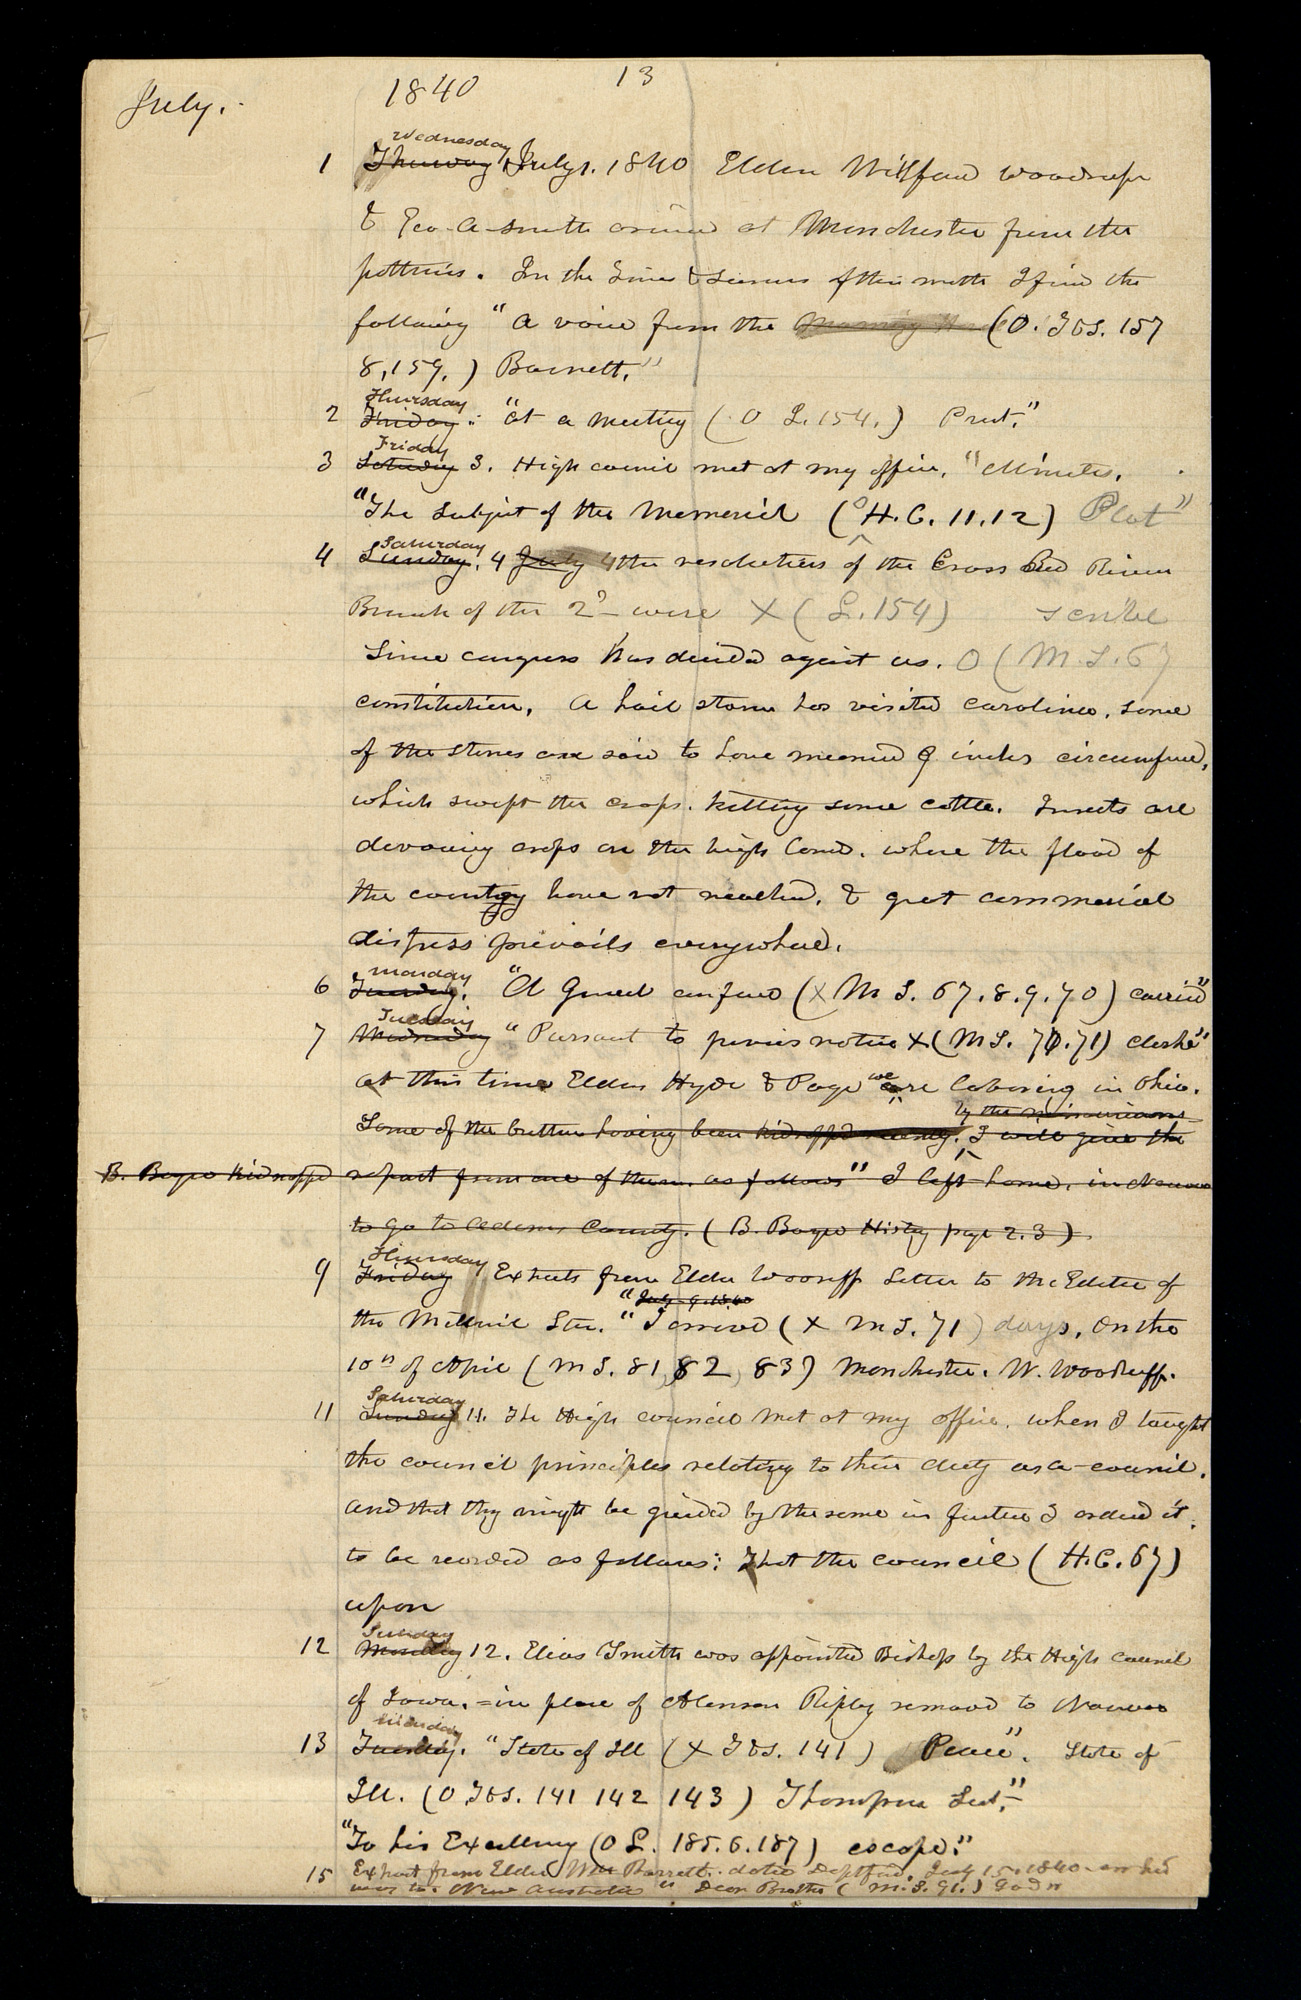 July.
1840
13
Wednesday
1 Thursday July 1. 1840 Elder Willford Woodruff
& Geo-A-Smith arrived at Manchester from the
potteries. In the Times & Seasons of this month I find the
following "A voice from the Morning (O. T&S. 157
8, 159, ) Barnett."
Thursday
2 Friday: "At a meeting ( O L. 154.) Prest."
Friday
3 Saturday 3. High council met at my office. "Minutes.
"The Subject of the Memorial (O H.C. 11.12) Plot"
Saturday
4 Sunday. 4 July 4 the resolutions of the Cross and River
Branch of the 2d were X ( L. 154) Scribe
Since congress has decided against us. O ( M.S. 67
constitution. A hail storm has visited Carolina, some
of the stones are said to have measured 9 inches circumference,
which swept the crops. killing some cattle. Insects are
devouring crops on the high land. where the flood of
the country have not reached. & great commercial
distress prevails everywhere.
Monday
6 Tuesday. "A General conference (X M S. 67. 8. 9. 70) carried"
Tuesday
7 Wednesday "Pursuant to previous notice X (M S. 70.71) clerks"
at this time Elders Hyde & Page we are laboring in Ohio.
by the missourians
Some of the brethren having been kidnapped recently. I will give the
B. Boyce Kidnapped report from one of them. as follows" I left home, in Nauvoo
to go to Adams County. ( B. Boyce History page 2.3 )
Thursday
9 Friday Extracts from Elder Woodruff Letter to the Editor of
"July 9. 1840
the Millenial Star. "I arrived (X M S. 71 ) days, On the
10th of April ( M S. 81, 82, 83) Manchester. W. Woodruff.
Saturday
11 Sunday 11. The High council met at my office. when I taught
the council principles relating to their duty as a council.
and that they might be guided by the same in future I ordered it
to be recorded as follows: That the council ( H.C. 67)
upon
Sunday
12 Monday 12. Elias Smith was appointed Bishop by the High Council
of Iowa. in place of Alanson Ripley removed to Nauvoo
Monday
13 Tuesday. "State of Ill (X T&S. 141 ) Peace". State of
Ill. (O T&S. 141 142 143 ) Thompson Sect."
"To his Excellency (O L. 185. 6. 187) escape."
15 Extract from Elder Wm Barrett. dated Deptford, July 15. 1840 on his
way to. New Australia " Dear Brother ( M.S. 91.) God"